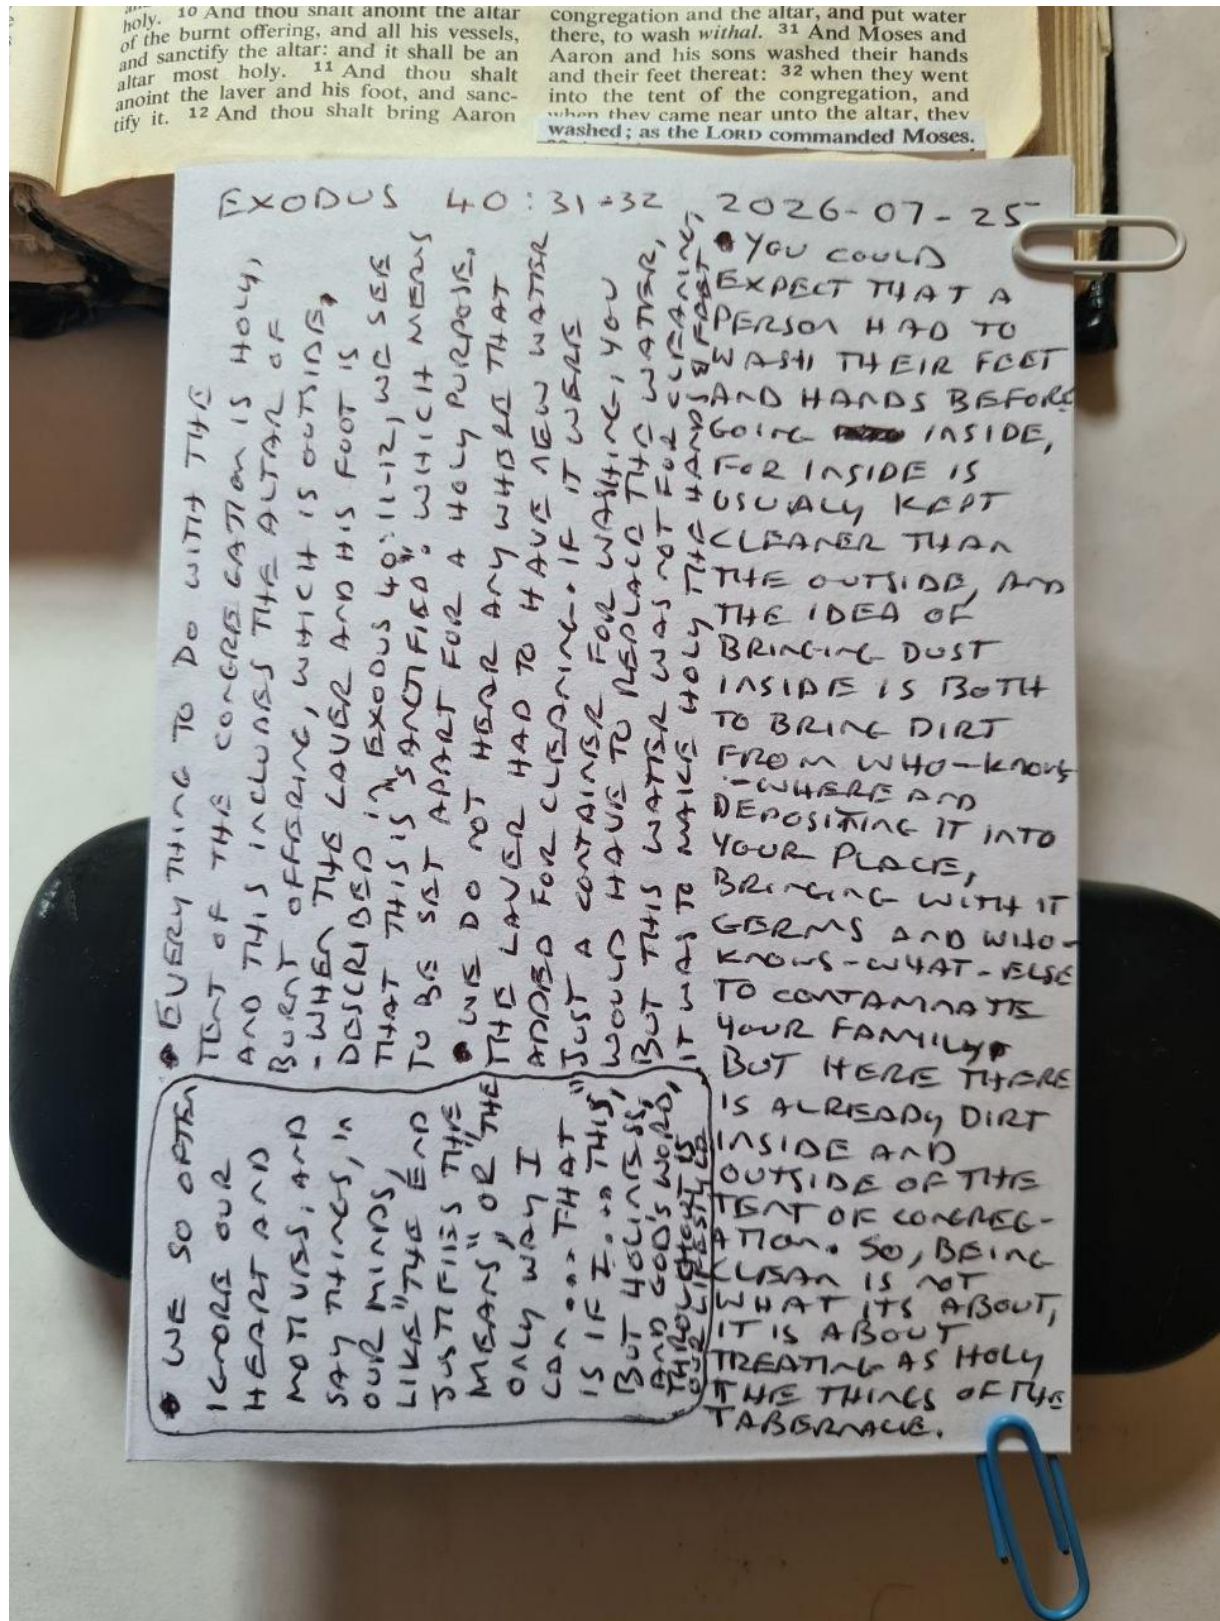 holy. 10 And thou shalt anoint the altar
of the burnt offering, and all his vessels,
and sanctify the altar: and it shall be an
altar most holy. 11 And thou shalt
anoint the laver and his foot, and sanc-
tify it. 12 And thou shalt bring Aaron
congregation and the altar, and put water
there, to wash withal. 31 And Moses and
Aaron and his sons washed their hands
and their feet thereat: 32 when they went
into the tent of the congregation, and
when they came near unto the altar, they
washed; as the LORD commanded Moses.
EXODUS 40:31-32, 2026-07-25
• YOU COULD
EXPECT THAT A
PERSON HAD TO
WASH THEIR FEET
AND HANDS BEFORE
GOING INSIDE,
FOR INSIDE IS
USUALY KEPT
CLEANER THAN
THE OUTSIDE, AND
THE IDEA OF
BRINGING DUST
INSIDE IS BOTH
TO BRING DIRT
FROM WHO-KNOWS
-WHERE AND
DEPOSITING IT INTO
YOUR PLACE,
BRINGING WITH IT
GERMS AND WHO-
KNOWS-WHAT-ELSE
TO CONTAMNATE
YOUR FAMILY.
BUT HERE THERE
IS ALREADY DIRT
INSIDE AND
OUTSIDE OF THE
TENT OF CONGREG-
ATION. SO, BEING
CLEAN IS NOT
WHAT ITS ABOUT,
IT IS ABOUT
TREATING AS HOLY
THE THINGS OF THE
TABERNACLE.
• EVERYTHING TO DO WITH THE
TENT OF THE CONGREGATION IS HOLY,
AND THIS INCLUDES THE ALTAR OF
BURNT OFFERING, WHICH IS OUTSIDE.
- WHEN THE LAVER AND HIS FOOT IS
DESCRIBED IN EXODUS 40:11-12, WE SEE
THAT THIS IS "SANCTIFIED". WHICH MENS
TO BE SET APART FOR A HOLY PURPOSE.
• WE DO NOT HEAR ANY WHERE THAT
THE LAVER HAD TO HAVE NEW WATTER
ADDED FOR CLEANING. IF IT WERE
JUST A CONTAINER FOR WASHING, YOU
WOULD HAVE TO REPLACE THE WATER,
BUT THIS WATER WAS NOT FOR CLEANING,
IT WAS TO MAKE HOLY THE HANDS & FEET
• WE SO OFTEN
IGNORE OUR
HEART AND
MOTIVES, AND
SAY THINGS, IN
OUR MINDS,
LIKE "THE END
JUSTIFIES THE
MEANS", OR "THE
ONLY WAY I
CAN ... THAT
IS IF I ... THIS"
BUT HOLINESS,
AND GOD'S WORD,
THROUGHOUT IS
OUR LIFESTYLE